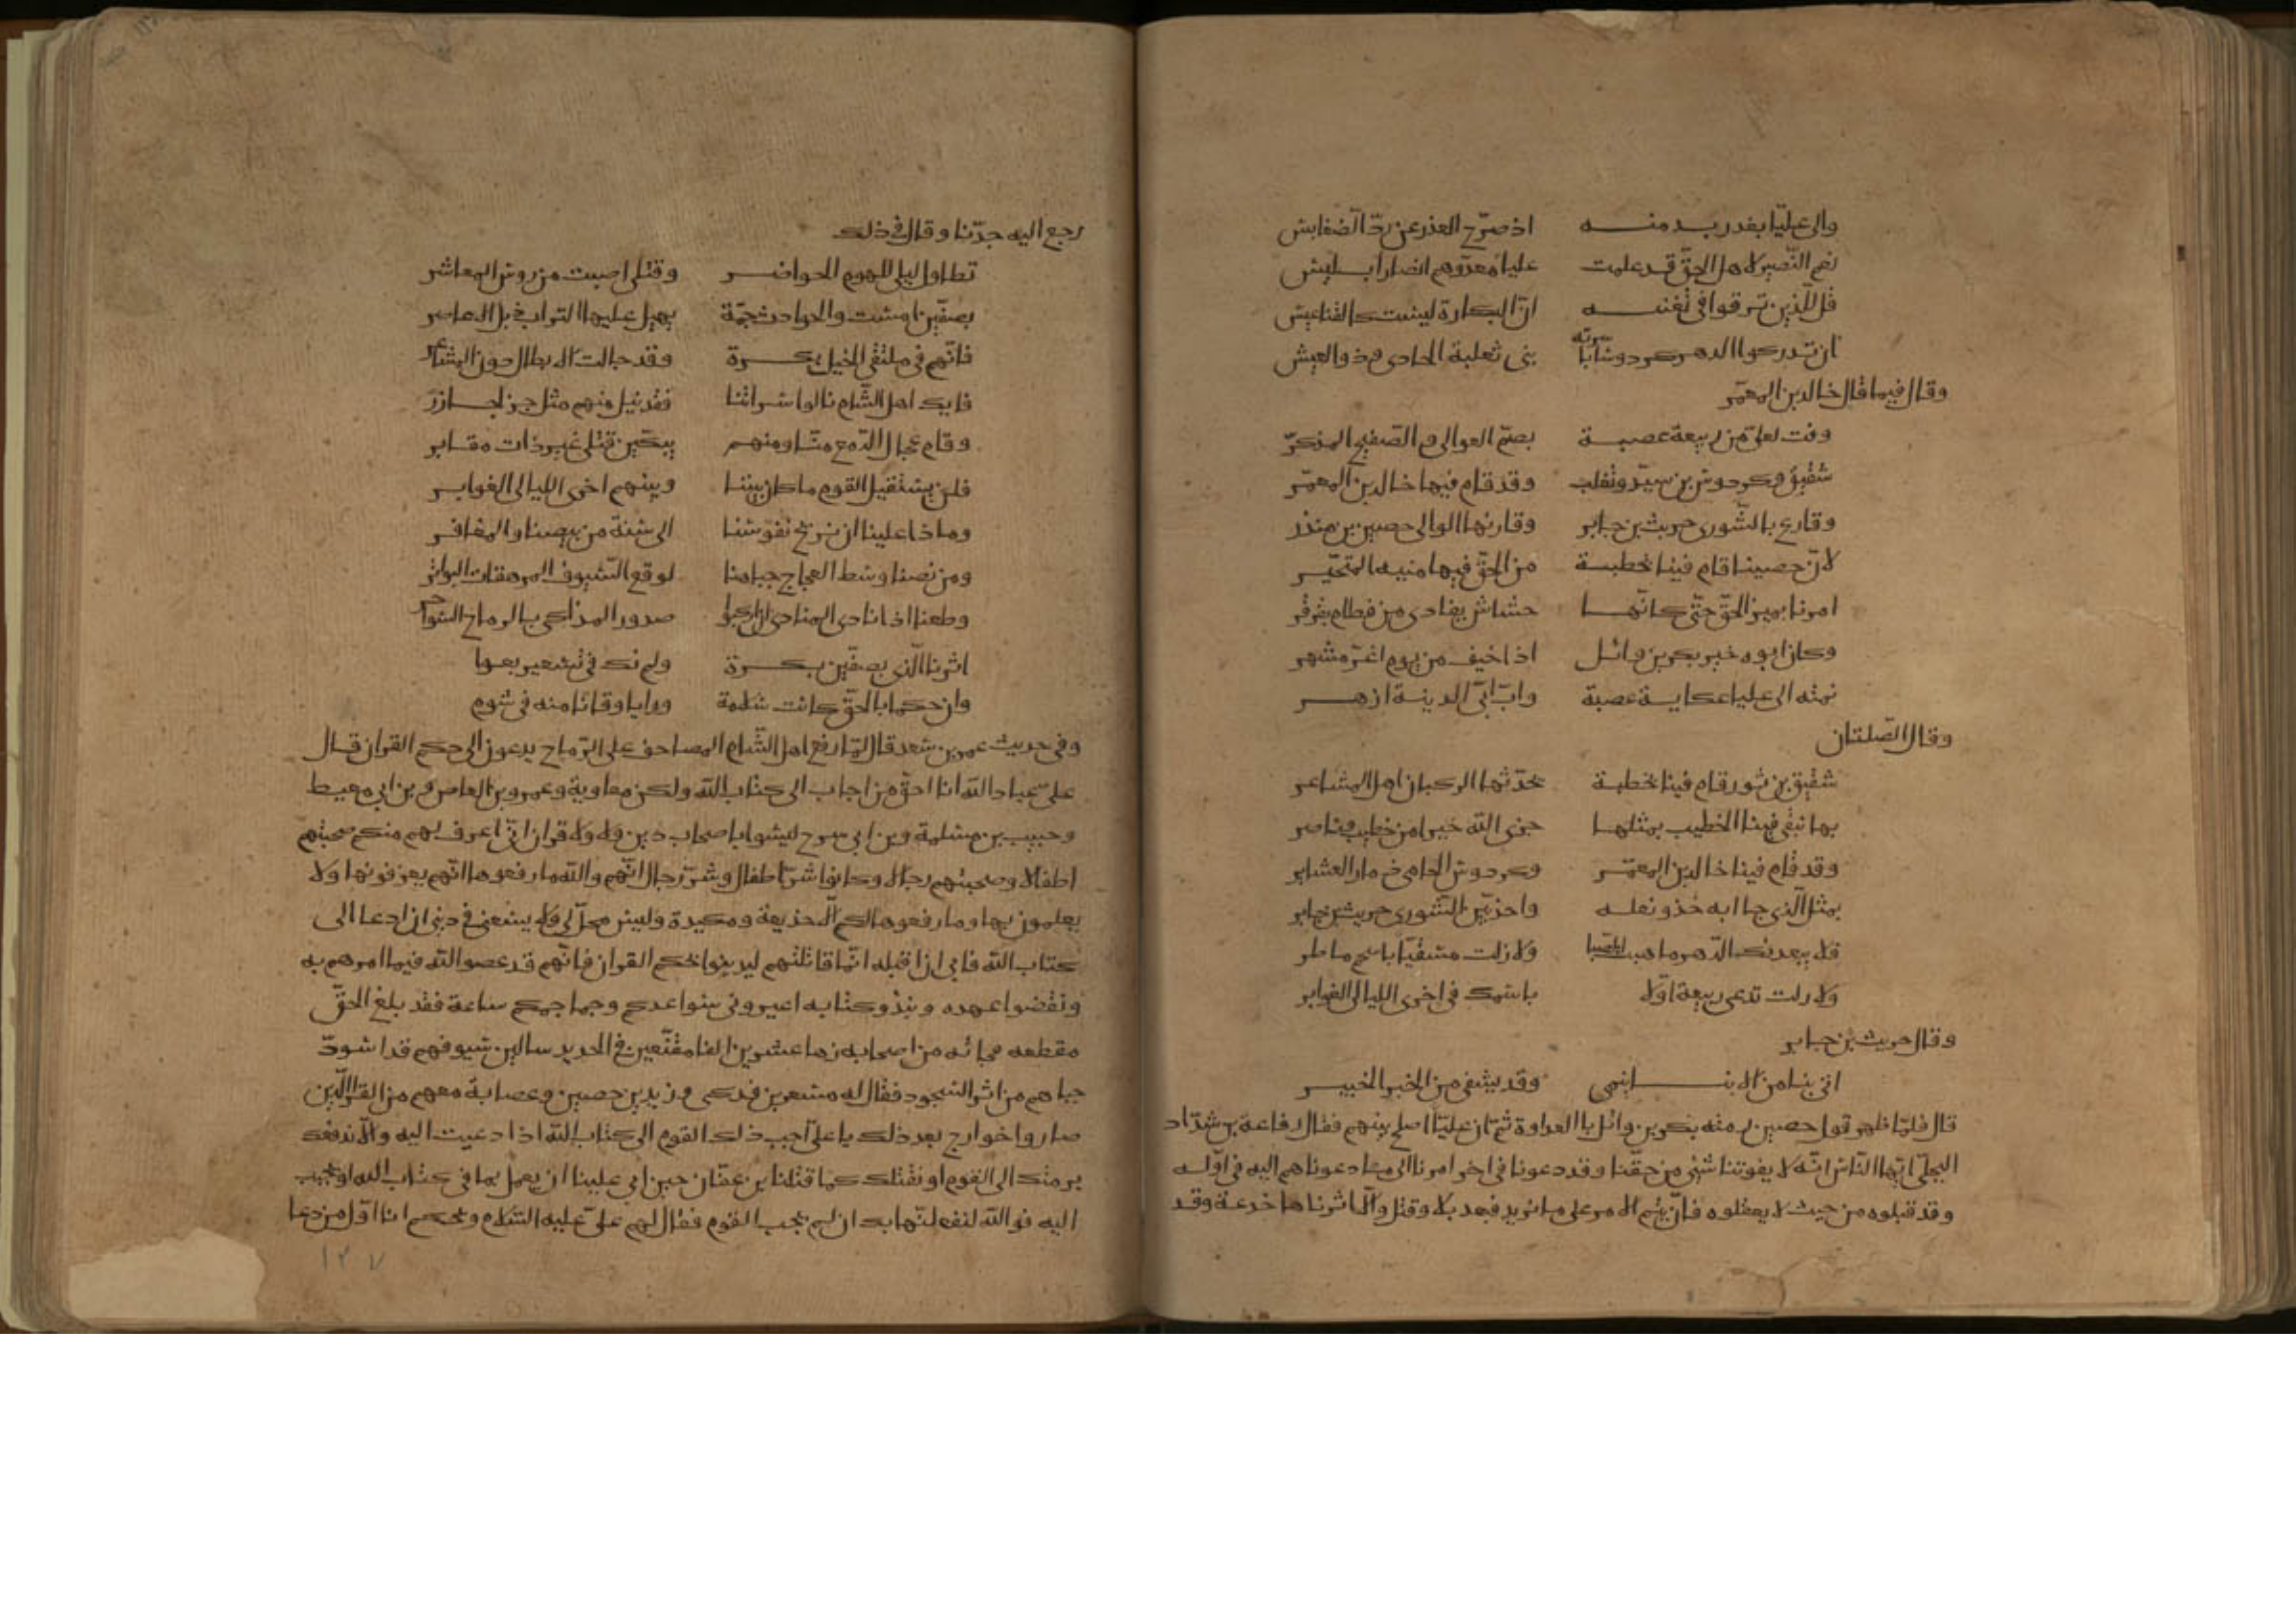 والى عليّا بغدر بد منه اذ صرّح الغدر عن ردّ الضغابيس
نعم النّصير لاهل الحقّ قد علمت عليا معدّ وهم انصار ابليس
قل للّذين ترقوا فى تعنته انّ البكارة ليست كالقناعيس
ان تدركوا الدهر كردوسا وأسرته بنى ثعلبة الحادى وذو العيس
وقال فيما قال خالد بن المعمّر
وفت لعلىّ من ربيعة عصبة بصمّ العوالى و الصّفيح المذكرّ
شقيق وكردوس بن سيّد وتغلب وقد قام فيها خالد بن المعمّر
وقارع بالشّورى حريث بن جابر وفاز بها لولا حصين بن منذر
لانّ حصينا قام فينا بخطبة من الحقّ فيها منية المتحيّر
امرنا بمير الحقّ حتّى كانّها خشاش تفادى من قطام بقرقر
وكان ابوه خير بكر بن وائل اذا خيف من يوم اغرّ مشهر
نمته الى عليا عكاية عصبة واب ابىّ الدنية ازهر
وقال الصّلتان
شقيق بن ثور قام فينا بخطبة يحدّثها الركبان اهل المشاعر
بها نبغى فينا الخطيب بمثلها جزى الله خيرا من خطيب وناصر
وقد قام فينا خالد بن المعمّر وكردوس الحامى ذمار العشاير
بمثل الّذى جاابه حذو نعله وقد بيّن الشّورى حريث بن جابر
فلا يبعدنك الدّهر ما هبت الصّبا ولا زلت مسقيّا باسحم ماطر
ولا زلت تدعى ربيعة اوّلا باسمك فى اخرى الليالى الغوابر
وقال حريث بن جابر
اتى بنا من الانبا ينمى وقد يشفى من الخبر الخبير
قال فلمّا ظهر قول حصين رمته بكر بن وائل باالعداوة ثمّ ان عليّا اصلح بينهم فقال رفاعة بن شدّاد
البجلّى ايّها النّاس انّه لا يفوتنا شيى من حقّنا وقد دعونا فى اخر امرنا الى ما دعوناهم اليه فى اوّله
وقد قبلوه من حيث لا يعقلوه فان يتم الامر على ما نريد فبعد بلا وقتل والّا اثرناها خدعة وقد
رجع اليه جدّنا وقال فى ذلك
تطاول ليلى للهموم الحواضر وقتلى اصيبت من روس المعاشر
بصفّين امست والحوادث جمّة يهيل عليها التراب ذيل الاعاصر
فانّهم فى ملتقى الخيل بكرة وقد جالت الابطال دون المشاعر
فايك اهل الشّام نالوا سراتنا فقد نيل منهم مثل جزر لجازر
وقام سجال الدّمع منّا ومنهم يبكّين قتلى غير ذات مقابر
فلن يستقيل القوم ما كان بيننا وبينهم اخرى الليالى الغوابر
وماذا علينا ان نريح نفوسنا الى سنة من بيضنا والمغافر
ومن نصبنا وسط العجاج جباهنا لوقع السّيوف المرهفات البواتر
وطعنا اذا نادى المنادى ان اركبوا صدور المذاكى بالرماح الشواجر
اثرنا الّذى بصفّين بكرة ولم نك فى تسعير بعوا
وان حكما بالحقّ كانت سلامة ورايا وقانا منه فى شوم
وفى حديث عمر بن سعد قال لمّا رفع اهل الشّام المصاحف على الرّماح يدعون الى حكم القران قال
علىّ عباد الله انا احقّ من اجاب الى كتاب الله ولكن معاوية وعمرو بن العاص و بن ابى معيط
وحبيب بن مسلمة و بن ابى سرح ليسوا باصحاب دين ولا ولا قران انّى اعرف بهم منكم صحبتهم
اطفالا وصحبتهم رجالا وكانوا شرّ اطفال وشرّ رجال انّهم والله ما رفعوها انّهم يعرفونها ولا
يعلمون بها وما رفعوها لكم الّا خديعة ومكيدة وليس يحلّ لى ولا يسعنى فى دينى ان ادعا الى
كتاب الله فابى ان اقبله انّما قاتلتهم ليدينوا بحكم القران فانّهم قد عصوا الله فيما امرهم به
ونقضوا عهده ونبذو كتابه اعيرونى سواعدكم وجماجمكم ساعة فقد بلغ الحقّ
مقطعه فجائه من اصحابه زها عشرين الفا مقنّعين فى الحديد سالين سيوفهم قد اسودّ
جباهم من اثر السجود فقال له مسعر بن فدكى وزيد بن حصين وعصابة معهم من القرا الّذين
صاروا خوارج بعد ذلك يا علىّ اجب ذلك القوم الى كتاب الله اذا دعيت اليه والّا ندفعك
برمتك الى القوم او نقتلك كما قتلنا بن عفّان حين ابى علينا ان يعمل بما فى كتاب الله او تجيب
اليه فو الله لنفعلنّها بك ان لم تجب القوم فقال لهم علىّ عليه السّلام ويحكم انا اوّل من دعا
١٢٧